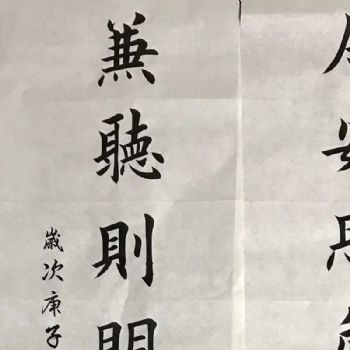 安思
兼聽則明
歲次庚子